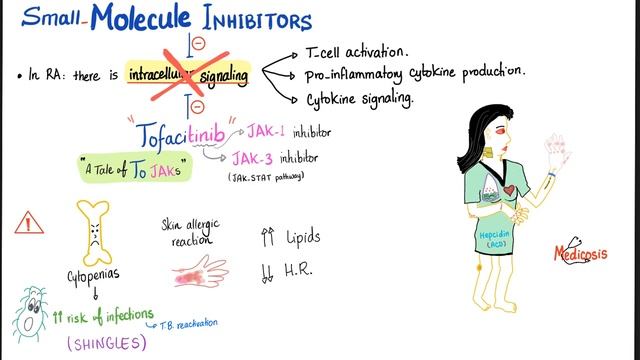 Small-Molecule Inhibitors
• In RA: there is intracellular signaling
T-cell activation.
Pro-inflammatory cytokine production.
Cytokine signaling.
"Tofacitinib"
JAK-1 inhibitor
JAK-3 inhibitor
(JAK-STAT pathway)
"A Tale of To JAKs"
Cytopenias
↑↑ risk of infections
T.B. reactivation
(SHINGLES)
Skin allergic
reaction
↑↑ Lipids
↓↓ H.R.
Hepcidin
(ACD)
Medicosis